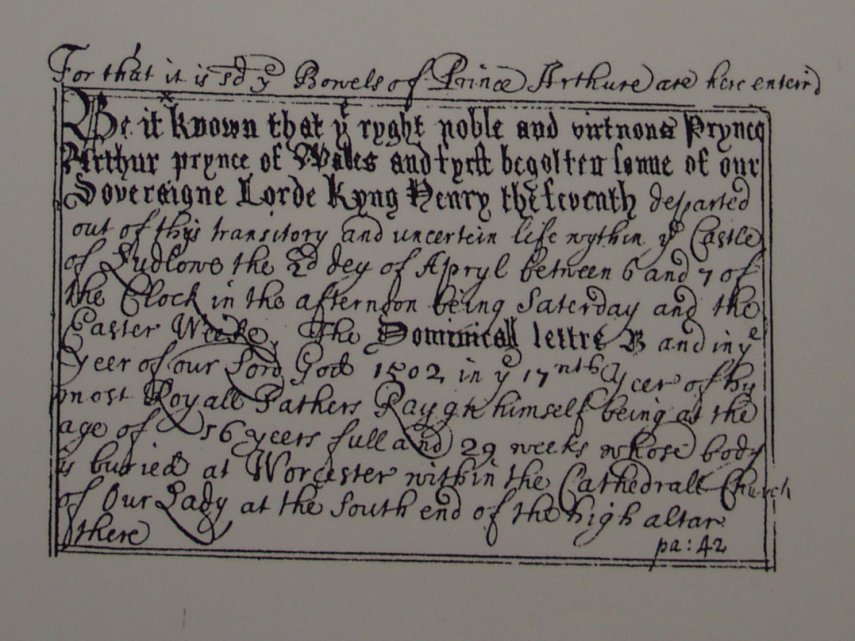 For that it is sd ye Bowels of Prince Arthure are here enterr'd
Be it known that ye ryght noble and virtuous Prynce
Arthur prynce of Wales and fyrst begotten sonne of our
Sovereigne Lorde Kyng Henry the seventh departed
out of thys transitory and uncertein life wythin ye Castle
of Ludlowe the 2d dey of Apryl between 6 and 7 of
the Clock in the afternoon being Saterday and the
Easter Weeke, The Dominicall lettre B and in ye
Yeer of our Lord God 1502 in ye 17nth Yeer of hy
most Royall Fathers Raygn himself being at the
age of 16 yeers full and 29 weeks whose body
is buried at Worcester within the Cathedrall Church
of Our Lady at the South end of the high altar
there
pa: 42